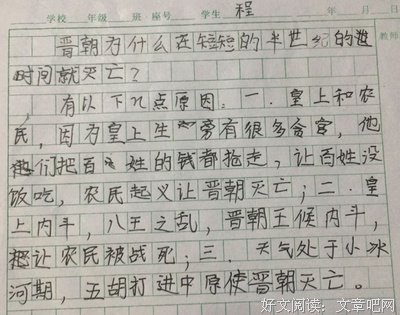 学校 年级 班 座号 学生 程 年 月 日
教师
晋朝为什么在短短的半世纪的
时间就灭亡？
有以下几点原因．一．皇上和农
民，因为皇上生旁有很多贪官，他
们把百姓的钱都抢走，让百姓没
饭吃，农民起义让晋朝灭亡；二．皇
上内斗，八王之乱，晋朝王候内斗，
让农民被战死；三．天气处于小冰
河期，五胡打进中原使晋朝灭亡。
好文阅读：文章吧网